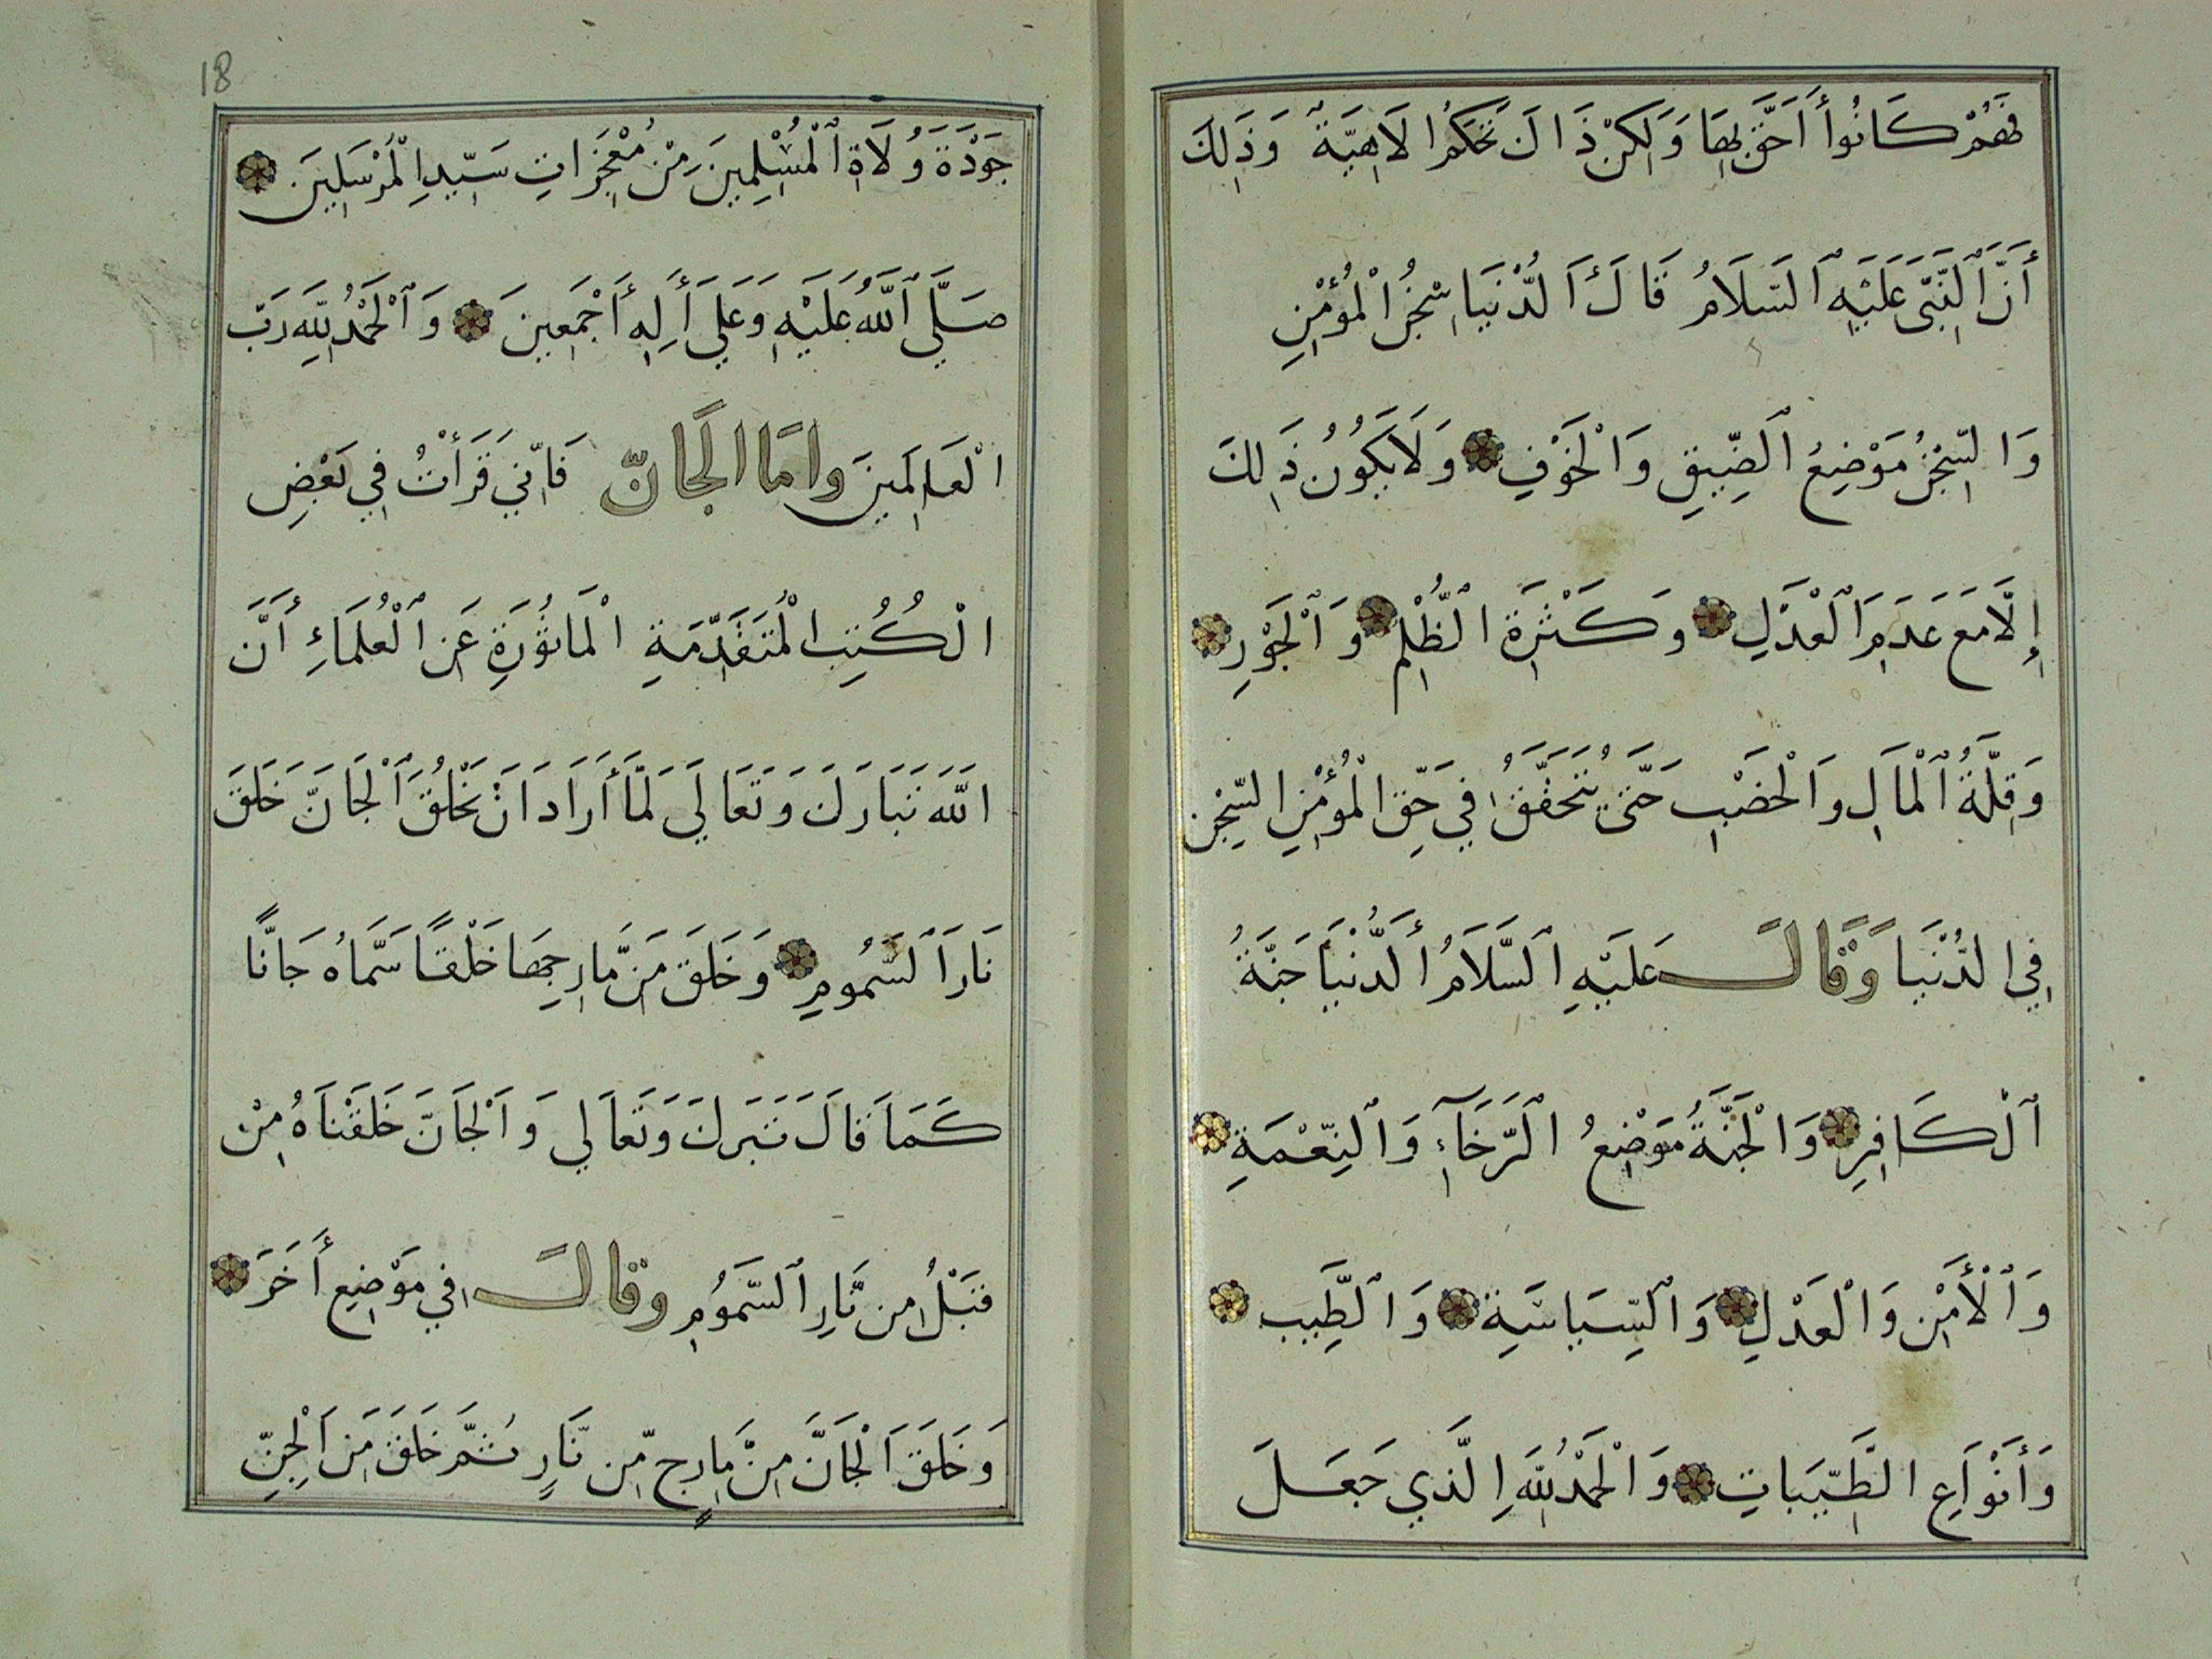 فَهُمْ كَانُوا أَحَقَّ بِهَا وَلَكِنْ ذَالَ تَحَكُّمُ الَاهِيَّةٌ وَذَلِكَ
أَنَّ النَّبِيَّ عَلَيْهِ السَّلَامُ قَالَ الدُّنْيَا سِجْنُ الْمُؤْمِنِ
وَالسِّجْنُ مَوْضِعُ الضِّيقِ وَالْخَوْفِ وَلَا يَكُونُ ذَلِكَ
إِلَّا مَعَ عَدَمِ الْعَدْلِ وَكَثْرَةِ الظُّلْمِ وَالْجَوْرِ
وَقِلَّةُ الْمَالِ وَالْخَصْبِ حَتَّى يُتَحَقَّقُ فِي حَقِّ الْمُؤْمِنِ السِّجْن
فِي الدُّنْيَا وَقَالَ عَلَيْهِ السَّلَامُ الدُّنْيَا جَنَّةُ
الْكَافِرِ وَالْجَنَّةُ مَوْضِعُ الرَّخَآءِ وَالنِّعْمَةِ
وَالْأَمْنِ وَالْعَدْلِ وَالسِّيَاسَةِ وَالطِّيب
وَأَنْوَاعِ الطَّيِّبَاتِ وَالْحَمْدُ لِلَّهِ الَّذِي جَعَلَ
18
جَوْدَةَ وُلَاةِ الْمُسْلِمِينَ مِنْ مُعْجِزَاتِ سَيِّدِ الْمُرْسَلِينَ
صَلَّى اللَّهُ عَلَيْهِ وَعَلَى أَلِهِ أَجْمَعِينَ وَالْحَمْدُ لِلَّهِ رَبّ
الْعَالَمِينَ وامَّا الجَانّ فَإِنِّي قَرَأْتُ فِي بَعْضِ
الْكُتُبِ الْمُتَقَدِّمَةِ الْمَاثُورَةِ عَنِ الْعُلَمَاءِ أَنَّ
اللَّهَ تَبَارَكَ وَتَعَالَى لَمَّا أَرَادَ انْ يَخْلُقَ الْجَانَّ خَلَقَ
نَارَ السَّمُومِ وَخَلَقَ مَنْ مَّارِجِهَا خَلْقًا سَمَّاهُ جَانًّا
كَمَا قَالَ تَبَرَكَ وَتَعَالَى وَالْجَانَّ خَلَقْنَاهُ مِنْ
قَبْلُ مِن نَّارِ السَّمُومِ وقالَ فِي مَوْضِعٍ أَخَرَ
وَخَلَقَ الْجَانَّ مِنْ مَّارِجٍ مِّن نَّارٍ ثُمَّ خَلَقَ مَنَ الْجِنِّ